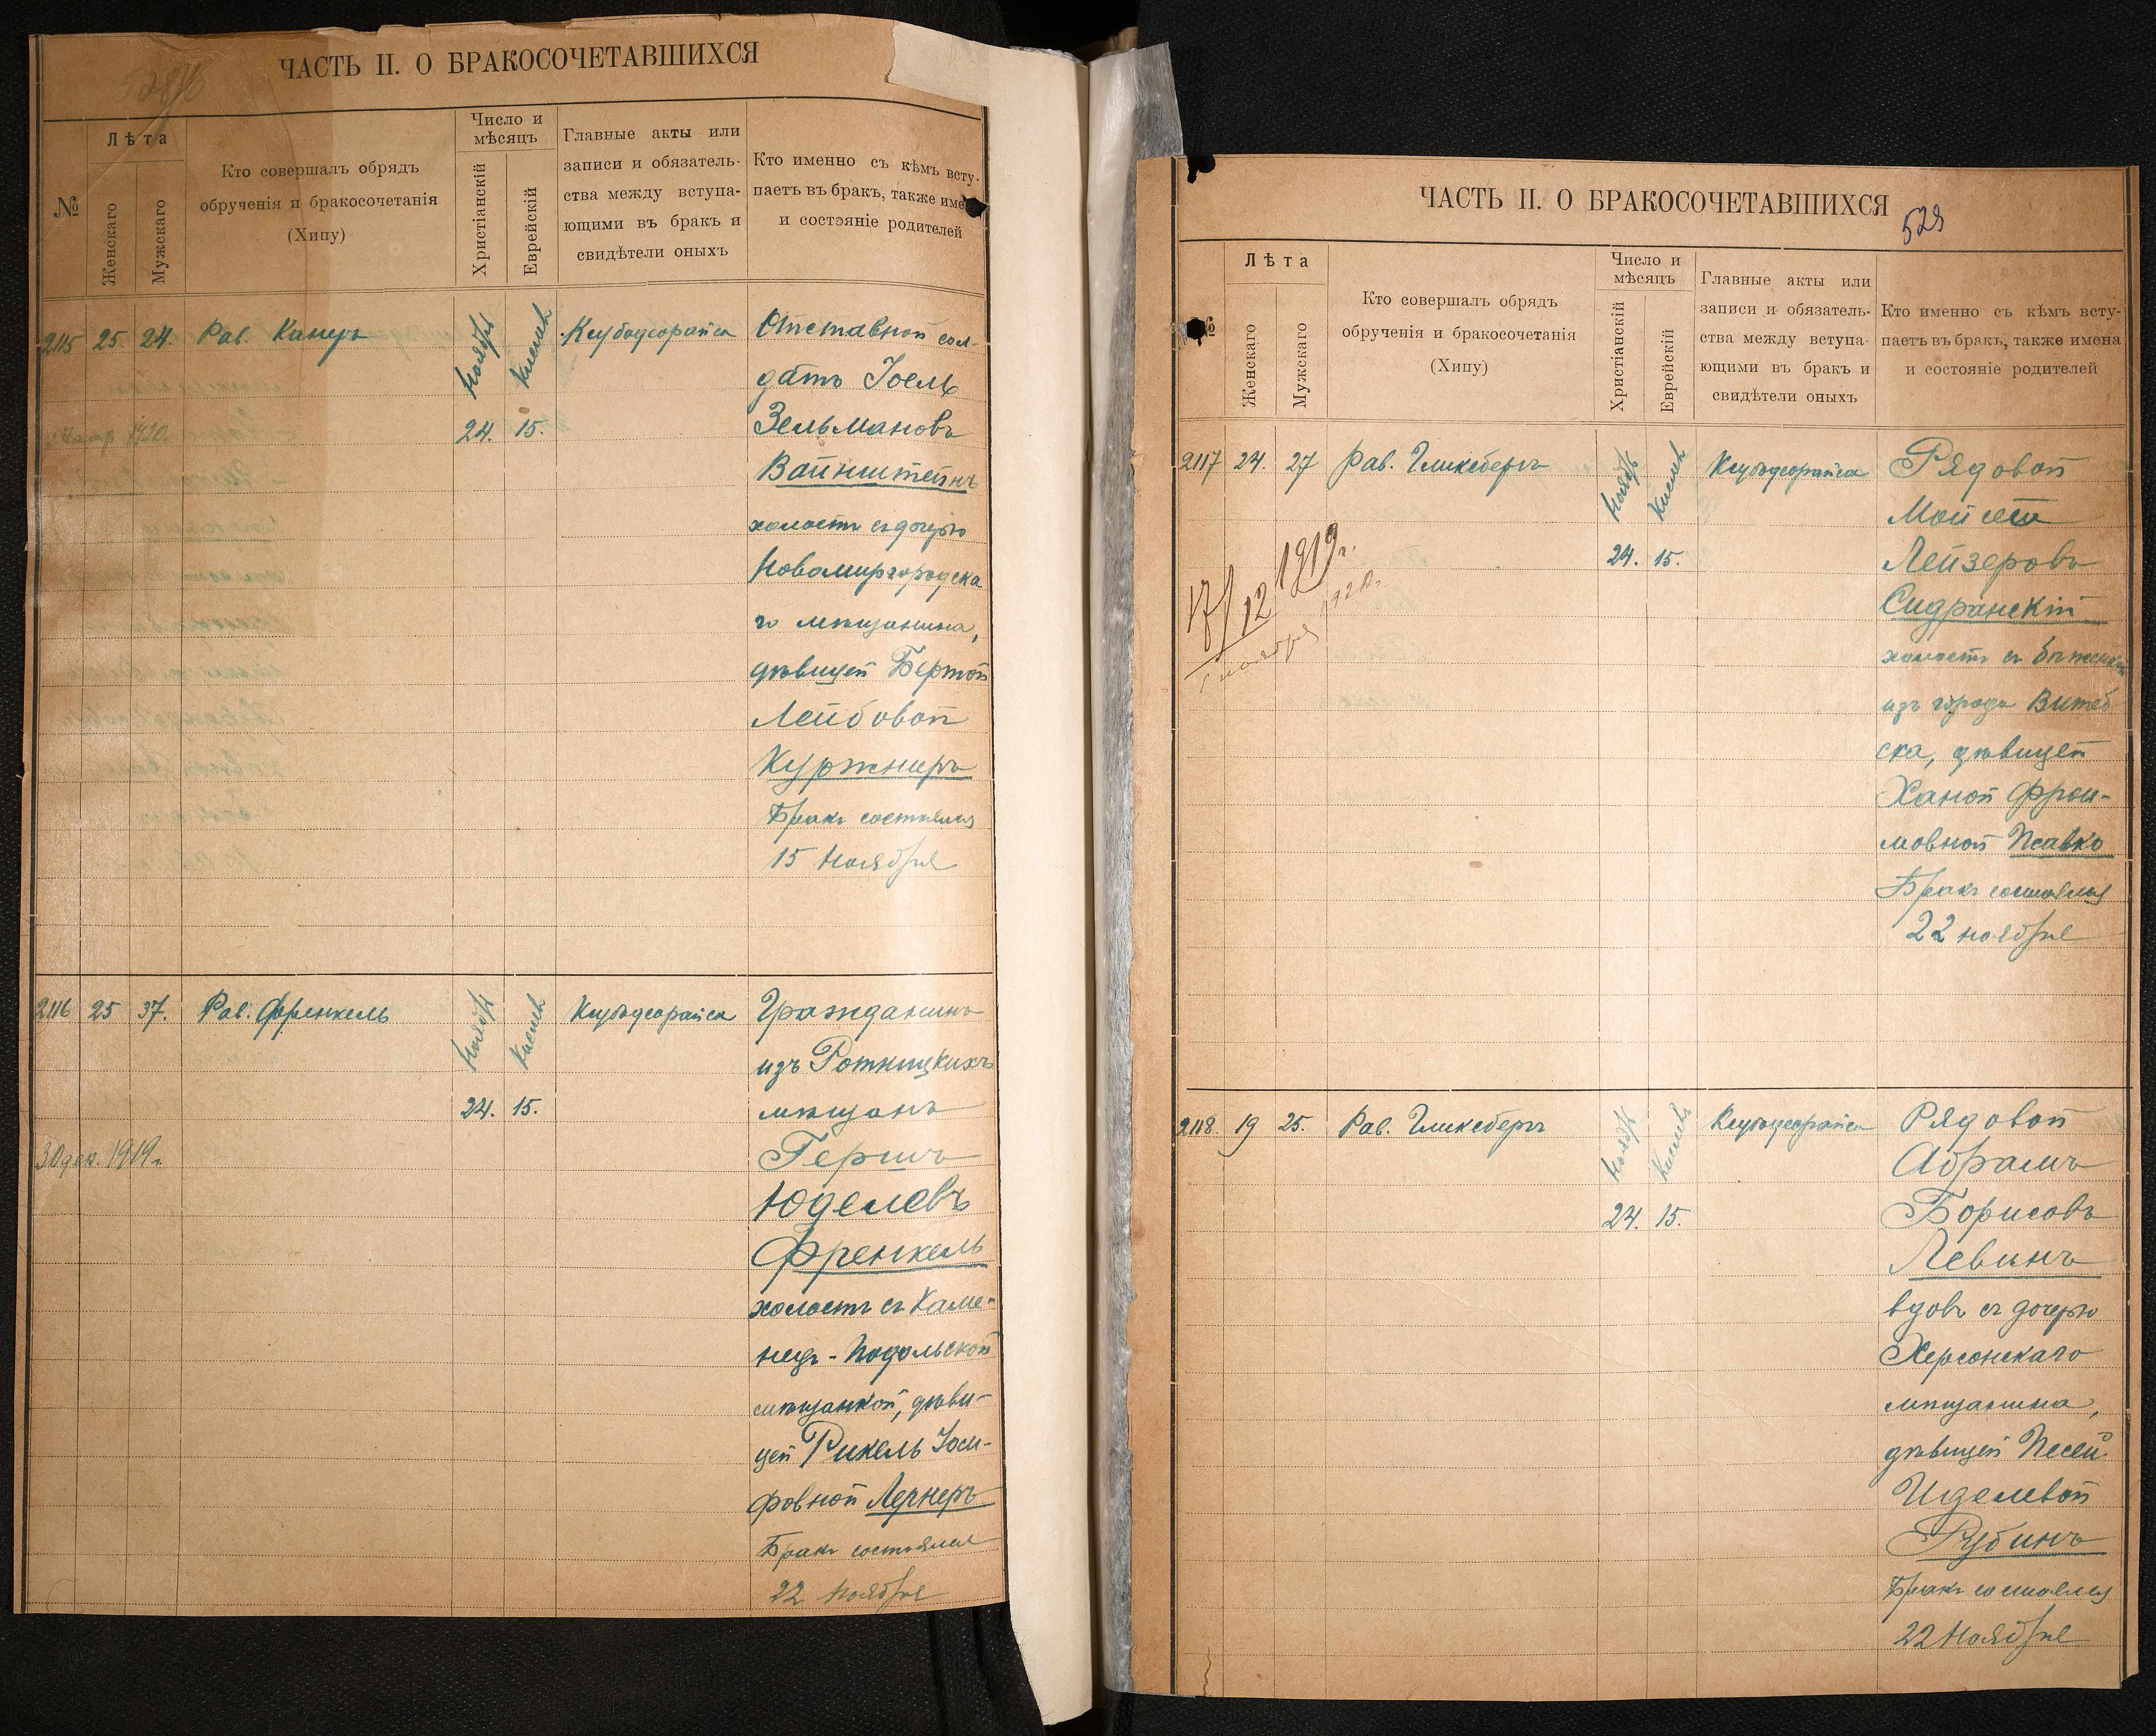 ЧАСТЬ II. О БРАКОСОЧЕТАВШИХСЯ
№
Лѣта
Женскаго
Мужскаго
Кто совершалъ обрядъ
обрученія и бракосочетанія
(Хипу)
Число и
мѣсяцъ
Христіанскій
Еврейскій
Главные акты или
записи и обязатель-
ства между вступа-
ющими въ бракъ и
свидѣтели оныхъ
Кто именно съ кѣмъ всту-
паетъ въ бракъ, также имена
и состояніе родителей
2115 25. 24. Рав. Канеръ
Ноябрь
Кислевъ
24. 15.
Отставной сол-
датъ Іоель
Зельмановъ
Вайнштейнъ
холостъ съ дочерью
Новомиргородска
го мѣщанина,
дѣвицей Бертой
Лейбовой
Куржнеръ
Бракъ состоялся
15 Ноября
2116 25 37. Рав. Френкель
Ноябрь
Кислевъ
24. 15.
30 дек. 1919г.
Гражданинъ
изъ Ротницкихъ
мѣщанъ
Гершъ
Юделевъ
Френкель
холостъ съ Каме-
нец-Подольской
мѣщанкой, дѣви-
цей Рикель Іоси-
фовной Лернеръ
Бракъ состоялся
22 Ноября
ЧАСТЬ II. О БРАКОСОЧЕТАВШИХСЯ
529
№
Лѣта
Женскаго
Мужскаго
Кто совершалъ обрядъ
обрученія и бракосочетанія
(Хипу)
Число и
мѣсяцъ
Христіанскій
Еврейскій
Главные акты или
записи и обязатель-
ства между вступа-
ющими въ бракъ и
свидѣтели оныхъ
Кто именно съ кѣмъ всту-
паетъ въ бракъ, также имена
и состояніе родителей
2117 24. 27 Рав. Гликсбергъ
Ноябрь
Кислевъ
24. 15.
17/12 1919г.
Рядовой
Мойсей
Лейзеровъ
Сидранскій
холостъ съ бѣженкой
изъ города Витеб
ска, дѣвицей
Ханой Фрои-
мовной Псавко
Бракъ состоялся
22 ноября
2118. 19 25. Рав. Гликсбергъ
Ноябрь
Кислевъ
24. 15.
Рядовой
Абрамъ
Борисовъ
Левинъ
вдовъ съ дочерью
Херсонскаго
мѣщанина,
дѣвицей Песей
Иделевой
Рубинъ
Бракъ состоялся
22 Ноября